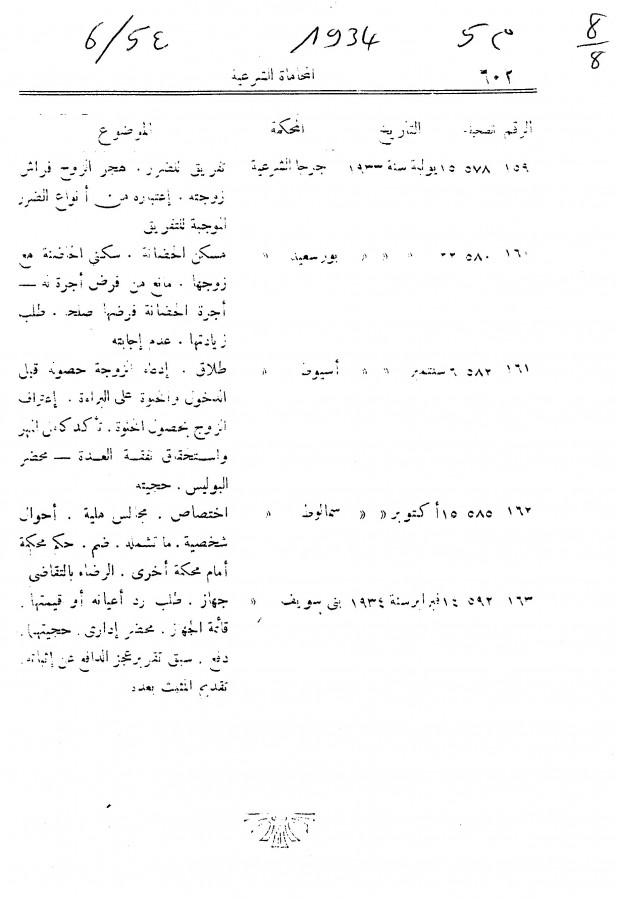 6/5ع 1934 5م 8/8
٦٠٢ المحاماة الشرعية
الرقم صحيفة التاريخ المحكمة الموضوع
١٥٩ ٥٧٨ ١٥ يولية سنة ١٩٣٣ جرجا الشرعية تفريق للضرر . هجر الزوج فراش
زوجته . إعتباره من أنواع الضرر
الموجبة للتفريق
١٦٠ ٥٨٠ ٢٢ « « « بورسعيد « مسكن الحضانة . سكنى الحاضنة مع
زوجها . مانع من فرض أجرة له —
أجرة الحضانة فرضها صلحا . طلب
زيادتها . عدم إجابته
١٦١ ٥٨٢ ٦ سبتمبر « « أسيوط « طلاق . إدعاء الزوجة حصوله قبل
الدخول والخلوة على البراءة . إعتراف
الزوج بحصول الخلوة . تأكد كامل المهر
واستحقاق نفقة العدة — محضر
البوليس . حجيته
١٦٢ ٥٨٥ ١٥ أكتوبر « « سمالوط « اختصاص . مجالس ملية . أحوال
شخصية . ما تشمله . ضم . حكم محكمة
أمام محكمة أخرى . الرضاء بالتقاضى
١٦٣ ٥٩٢ ١٤ فبراير سنة ١٩٣٤ بنى سويف « جهاز . طلب رد أعيانه أو قيمتها .
قائمة الجهاز . محضر إدارى . حجيتها .
دفع . سبق تقرير عجز الدافع عن إثباته .
تقديم المثبت بعده